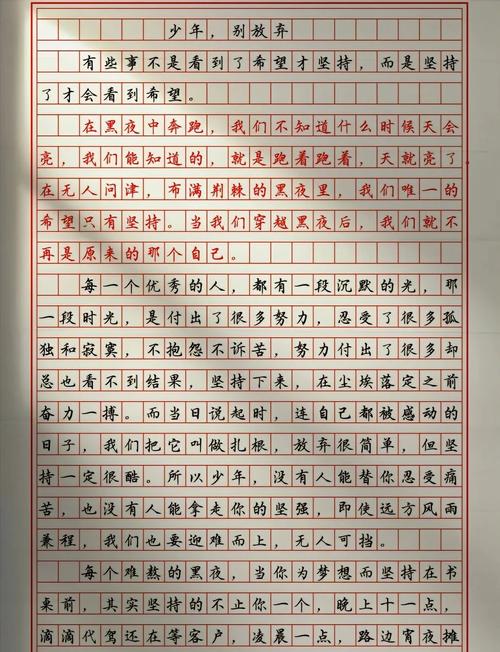 少年，别放弃
有些事不是看到了希望才坚持，而是坚持
了才会看到希望。
在黑夜中奔跑，我们不知道什么时候天会
亮，我们能知道的，就是跑着跑着，天就亮了
在无人问津，布满荆棘的黑夜里，我们唯一的
希望只有坚持。当我们穿越黑夜后，我们就不
再是原来的那个自己。
每一个优秀的人，都有一段沉默的光，那
一段时光，是付出了很多努力，忍受了很多孤
独和寂寞，不抱怨不诉苦，努力付出了很多却
总也看不到结果，坚持下来，在尘埃落定之前
奋力一搏。而当日说起时，连自己都被感动的
日子，我们把它叫做扎根，放弃很简单，但坚
持一定很酷。所以少年，没有人能替你忍受痛
苦，也没有人能拿走你的坚强，即使远方风雨
兼程，我们也要迎难而上，无人可挡。
每个难熬的黑夜，当你为梦想而坚持在书
桌前，其实坚持的不止你一个，晚上十一点，
滴滴代驾还在等客户，凌晨一点，路边宵夜摊